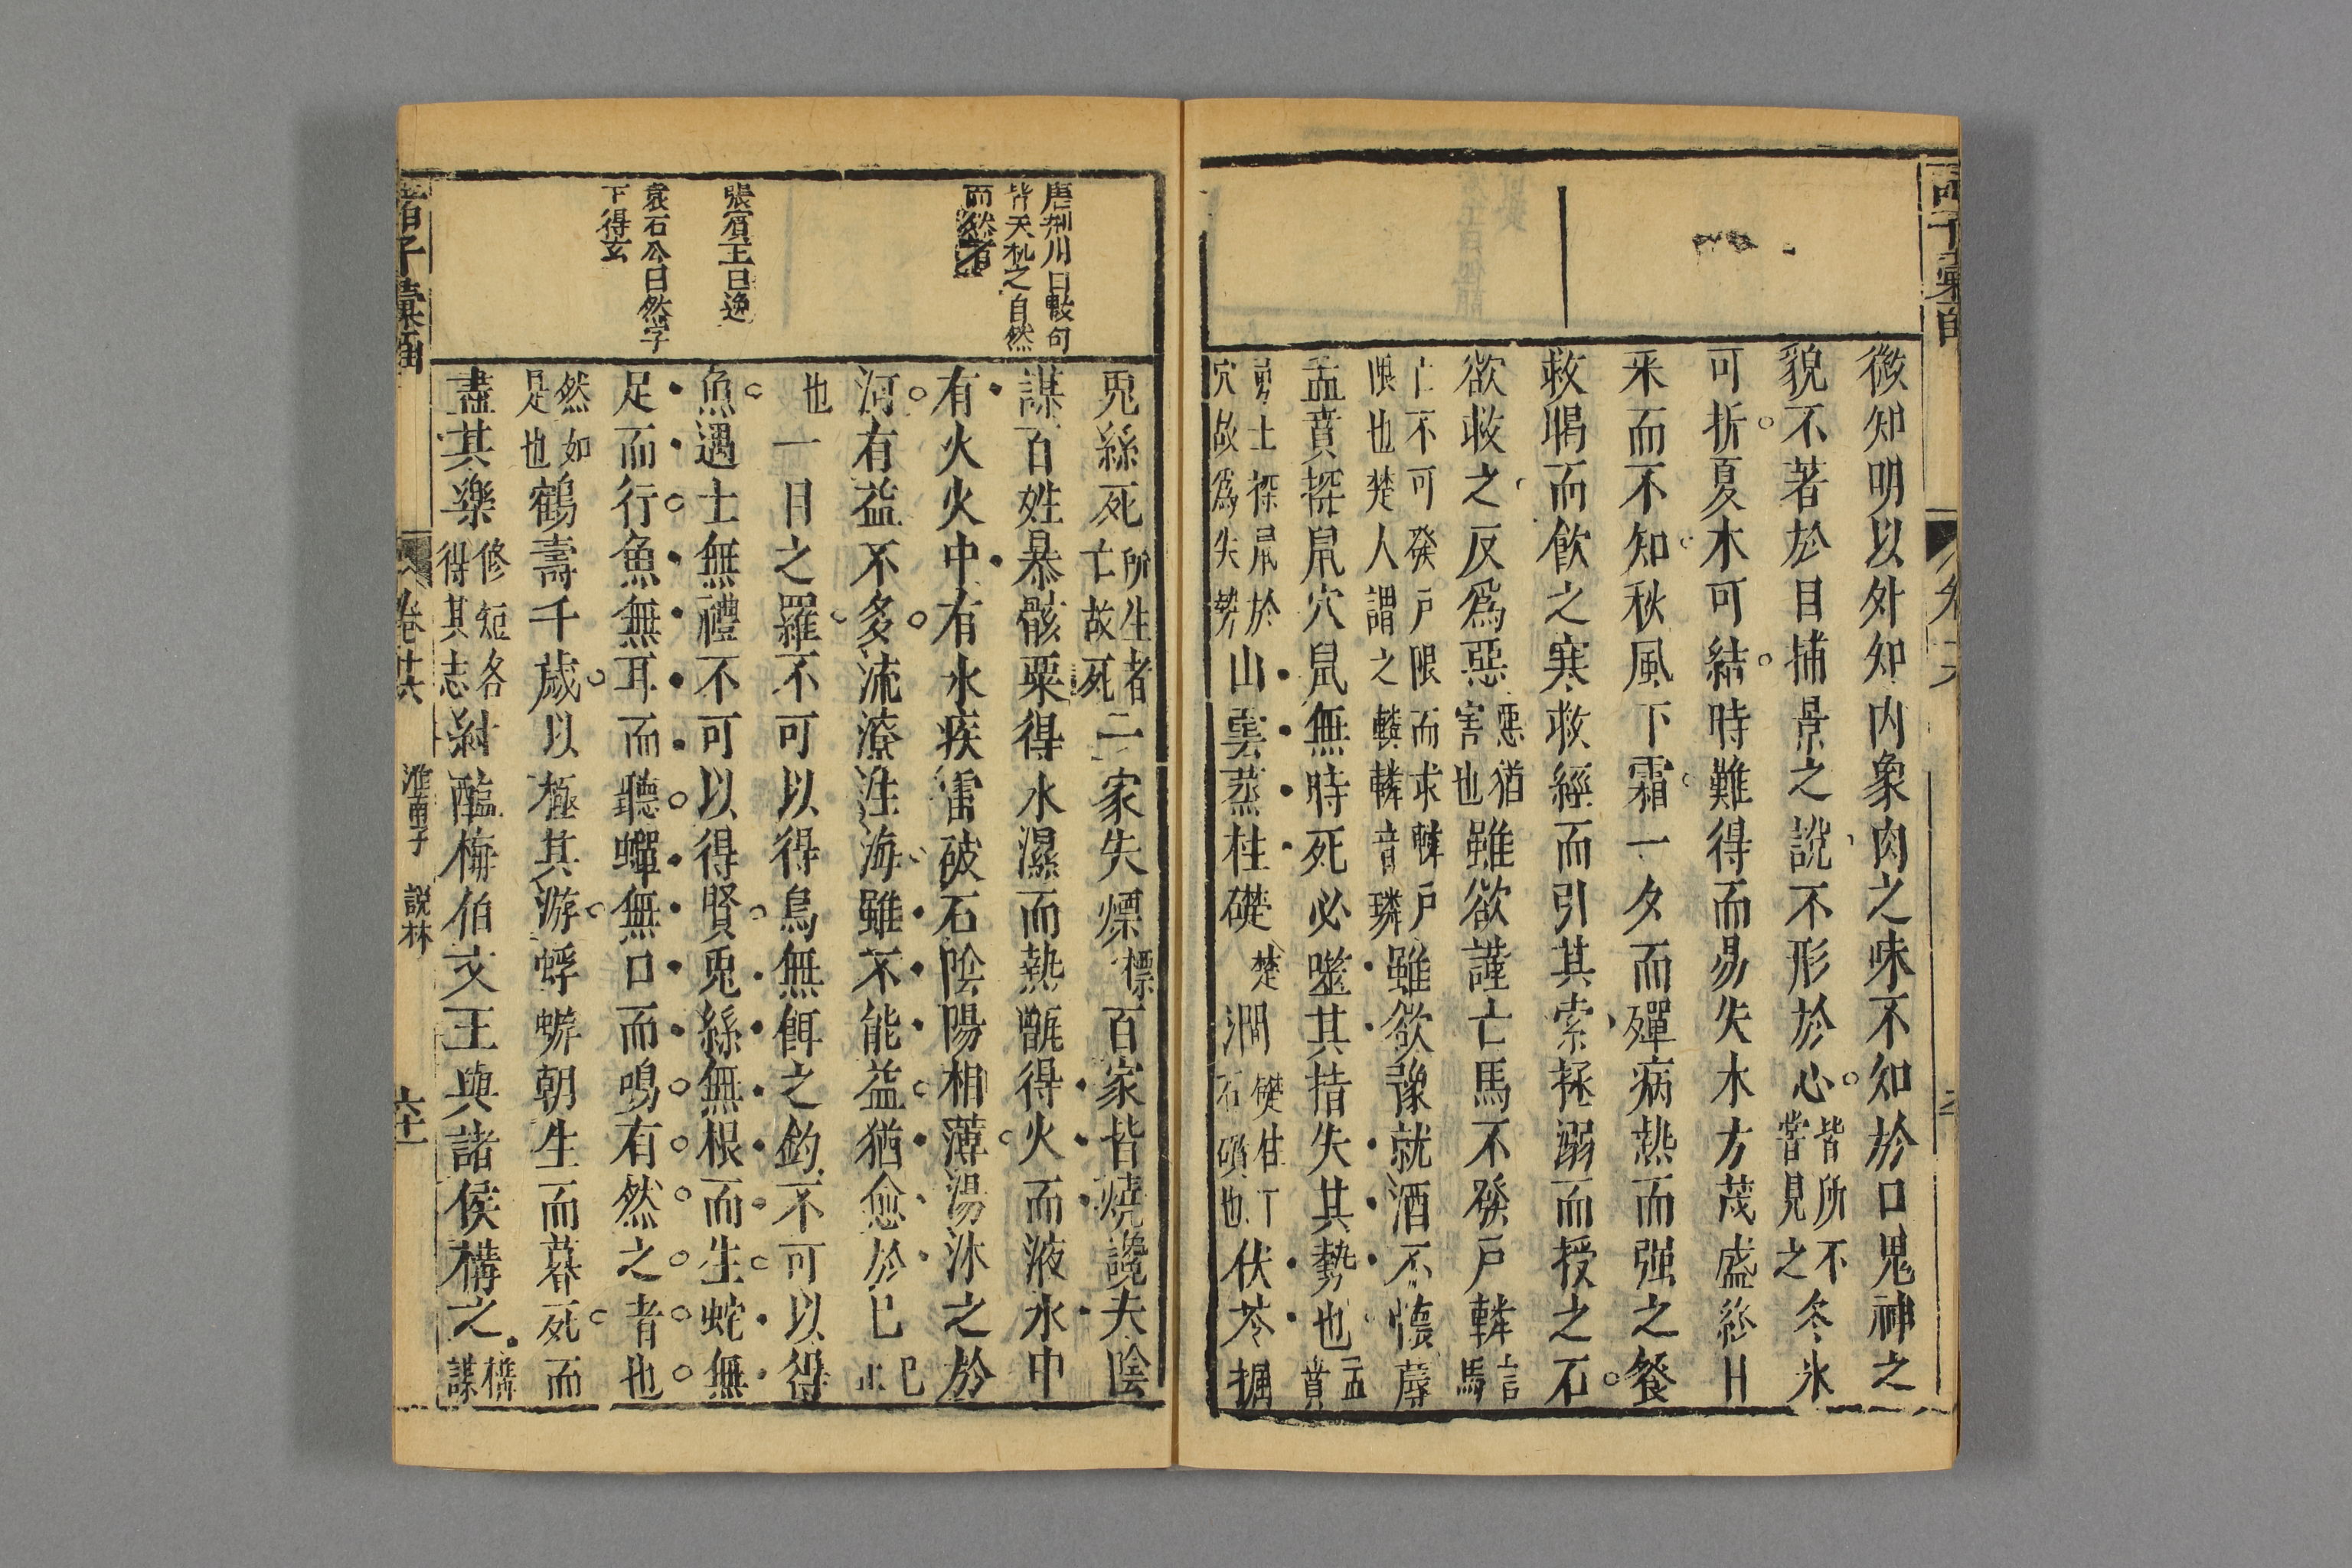 微知明以外知内象肉之味不知於口鬼神之
貌不著於目捕景之說不形於心皆所不嘗見之冬氷
可折夏木可結時難得而易失木方茂盛終日
采而不知秋風下霜一夕而殫病熱而强之餐
救暍而飲之寒救經而引其索拯溺而授之石
欲救之反爲惡惡猶害也雖欲謹亡馬不發戶轔言馬
亡不可發戶限而求轔戶限也楚人謂之轔轔音璘雖欲豫就酒不懷蓐
孟賁探鼠穴鼠無時死必噬其指失其勢也孟賁
勇士探鼠於穴故爲失勢山雲蒸柱礎楚潤礎柱下石礩也伏苓掘
兎絲死所生者亡故死二家失熛標百家皆燒讒夫陰
謀百姓暴骸粟得水濕而熱甑得火而液水中
有火火中有水疾雷破石陰陽相薄湯沐之於
河有益不多流潦注海雖不能益猶愈於已已止
也一目之羅不可以得鳥無餌之釣不可以得
魚遇士無禮不可以得賢兎絲無根而生蛇無
足而行魚無耳而聽蟬無口而鳴有然之者也
然如是也鶴壽千歲以極其游蜉蝣朝生而暮死而
盡其樂修短各得其志紂醢梅伯文王與諸侯構之構謀
唐荆川曰數句
皆天札之自然
而然者
張賓王曰逸
袁石公曰然字
下得玄
諸子彙函
卷十六
淮南子 說林
六十一